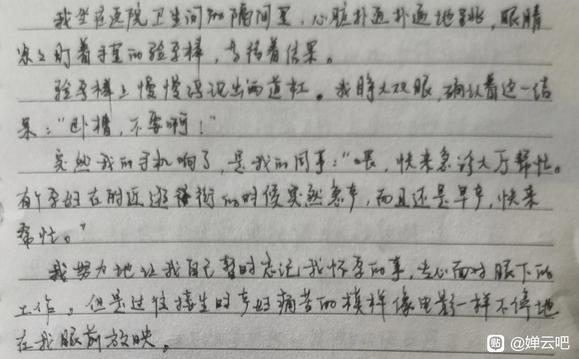 我坐在医院卫生间的隔间里，心脏扑通扑通地跳，眼睛
滚上盯着手里的验孕棒，等待着结果。
验孕棒上慢慢浮现出两道杠。我睁大双眼，确认着这一结
果："卧槽，不要啊！"
突然我的手机响了，是我的同事："喂，快来急诊大厅帮忙。
有个孕妇在附近逛街的时候突然急产，而且还是早产，快来
帮忙。"
我努力地让我自己暂时忘记我怀孕的事，专心面对眼下的
工作。但是过往接生时产妇痛苦的模样像电影一样不停地
在我眼前放映。
贴 @婵云吧